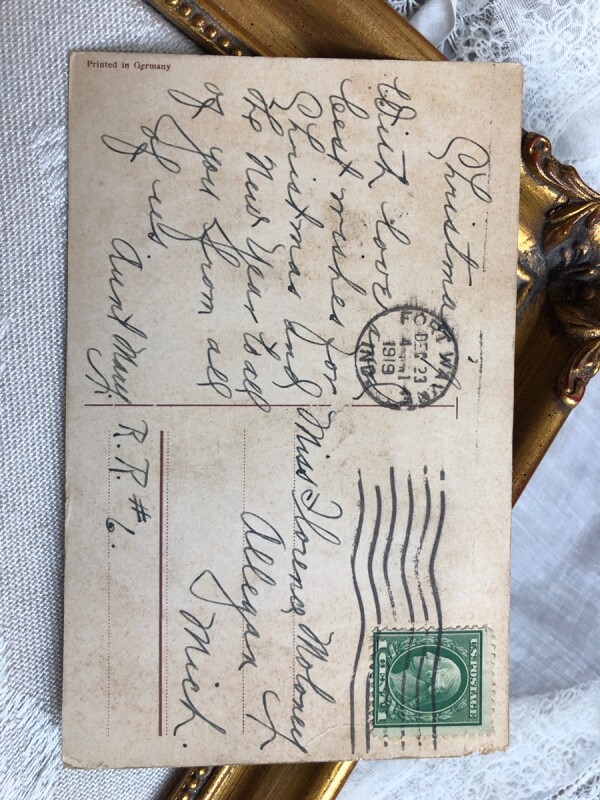 Printed in Germany
Christmas
With love and
best wishes for
Christmas and
the New Year to all
of you from all
of us
Aunt Mary
Miss Florence Moloney
Allegan
Mich.
R. R. #6.
FT WAYNE
DEC 23
4
1919
IND.
U.S. POSTAGE
1 CENT 1